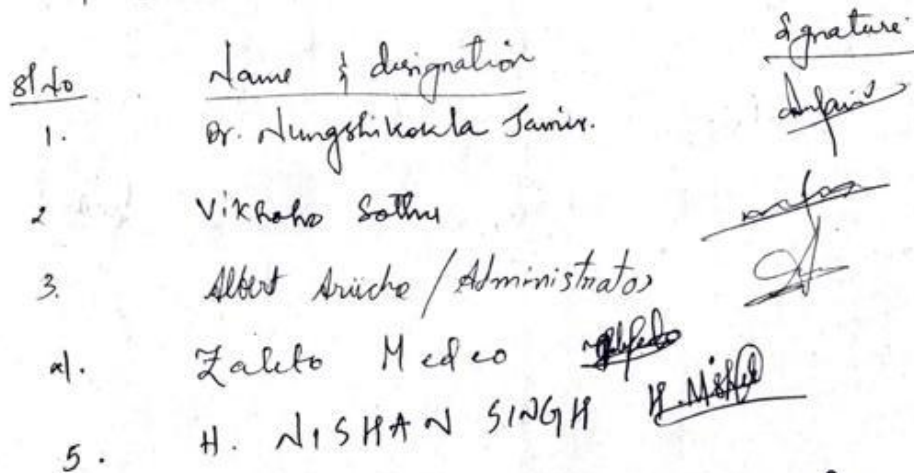 Sl No Name & designation Signature
1. Dr. Nungshikokla Jamir.
2 Vikhoho Sothu
3. Albert Arücho / Administrator
4. Zaleto Medeo
5. H. NISHAN SINGH